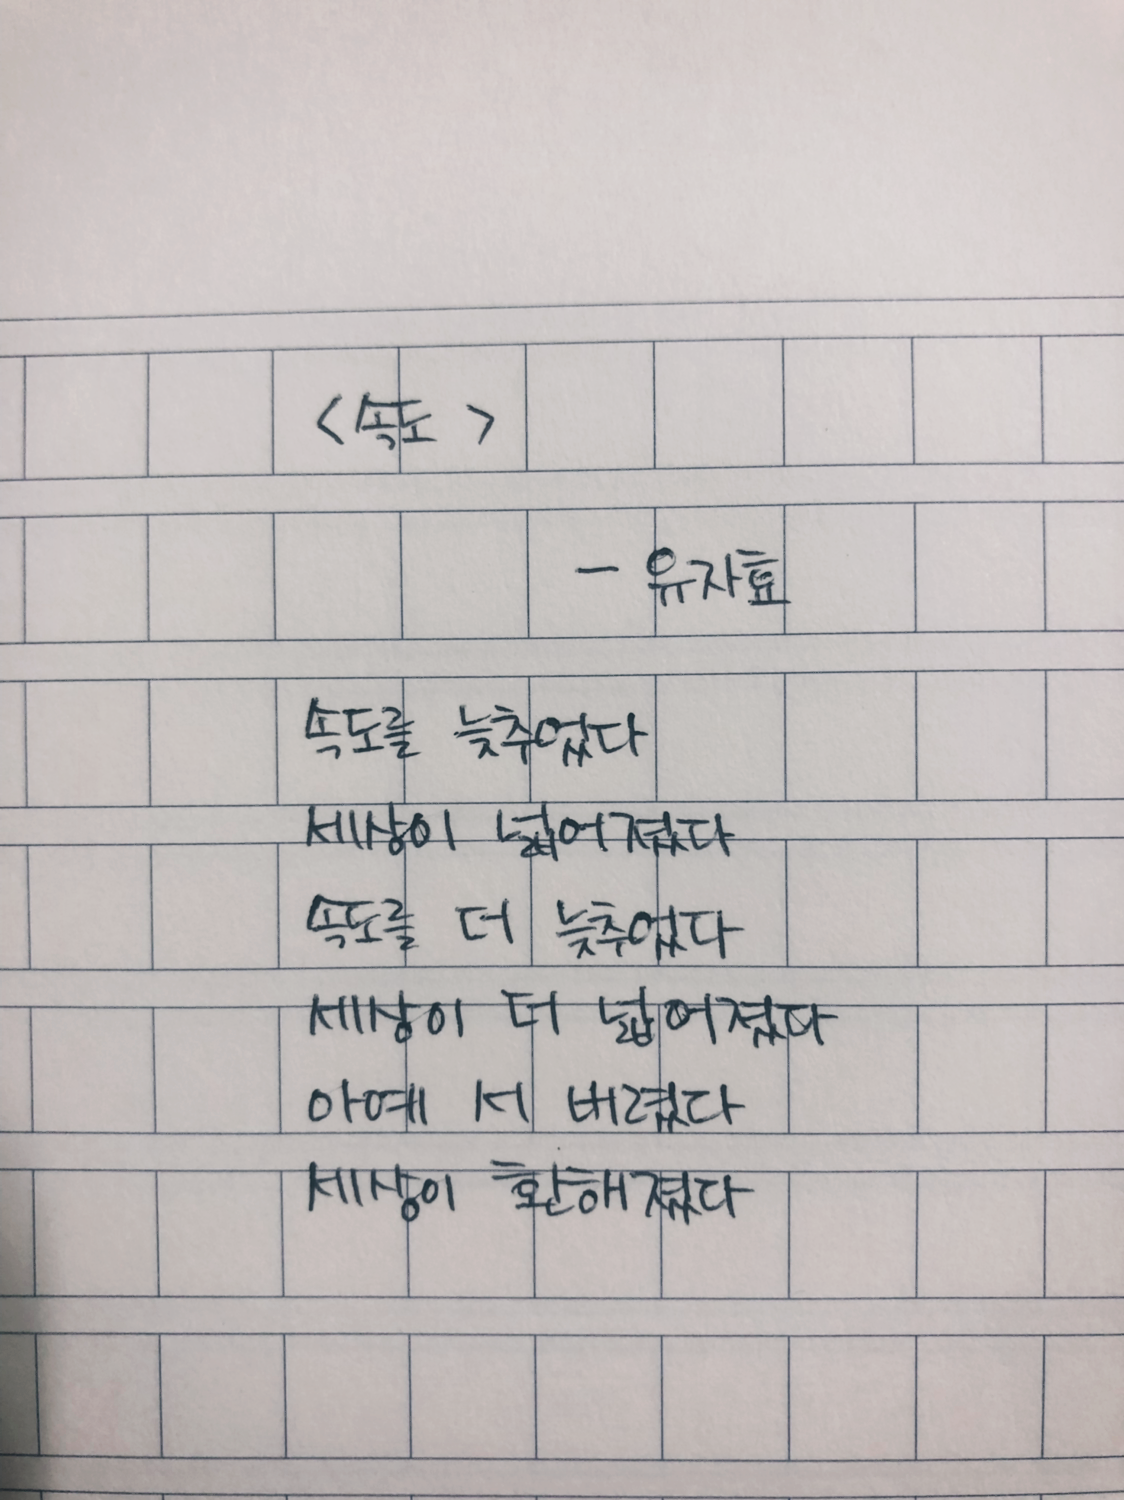 <속도>
- 유자효
속도를 늦추었다
세상이 넓어졌다
속도를 더 늦추었다
세상이 더 넓어졌다
아예 서 버렸다
세상이 환해졌다